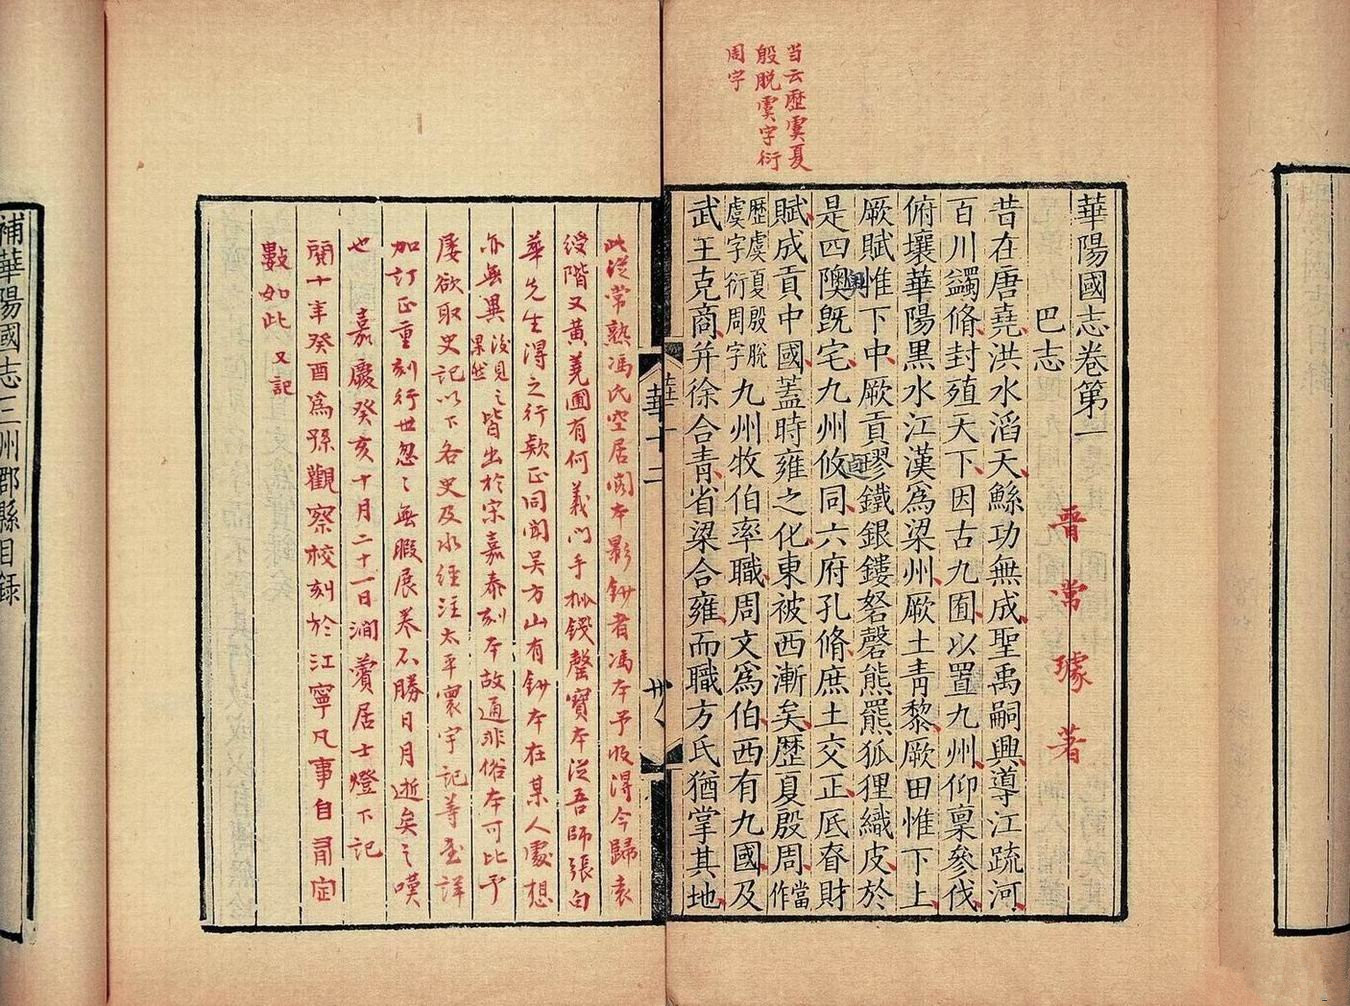 当云歷虞夏
殷脱虞字衍
周字
華陽國志卷第一
巴志
晋常璩著
昔在唐堯洪水滔天鯀功無成聖禹嗣興導江疏河
百川蠲脩封殖天下因古九囿以置九州仰稟參伐
俯壤華陽黑水江漢爲梁州厥土青黎厥田惟下上
厥賦惟下中厥貢璆鐵銀鏤砮磬熊羆狐狸織皮於
是四隩旣宅九州攸同六府孔脩庶土交正厎眘財
賦成貢中國蓋時雍之化東被西漸矣歷夏殷周當作
歷虞夏殷脫虞字衍周字九州牧伯率職周文爲伯西有九國及
武王克商并徐合青省梁合雍而職方氏猶掌其地
華一
華十二
卅
此從常熟馮氏空居閣本影鈔者馮本予收得今歸袁
綬階又黄蕘圃有何義門手校錢罄寶本從吾師張白
華先生得之行款正同聞吴方山有鈔本在某人處想
亦無異後見之果然皆出於宋嘉泰刻本故通非俗本可比予
屡欲取史記以下各史及水經注太平寰宇記等書詳
加訂正重刻行世忽忽無暇展卷不勝日月逝矣之嘆
也 嘉慶癸亥十月二十一日澗薲居士燈下記
閱十年癸酉爲孫觀察校刻於江寧凡事自有定
數如此又記
補華陽國志三州郡縣目録